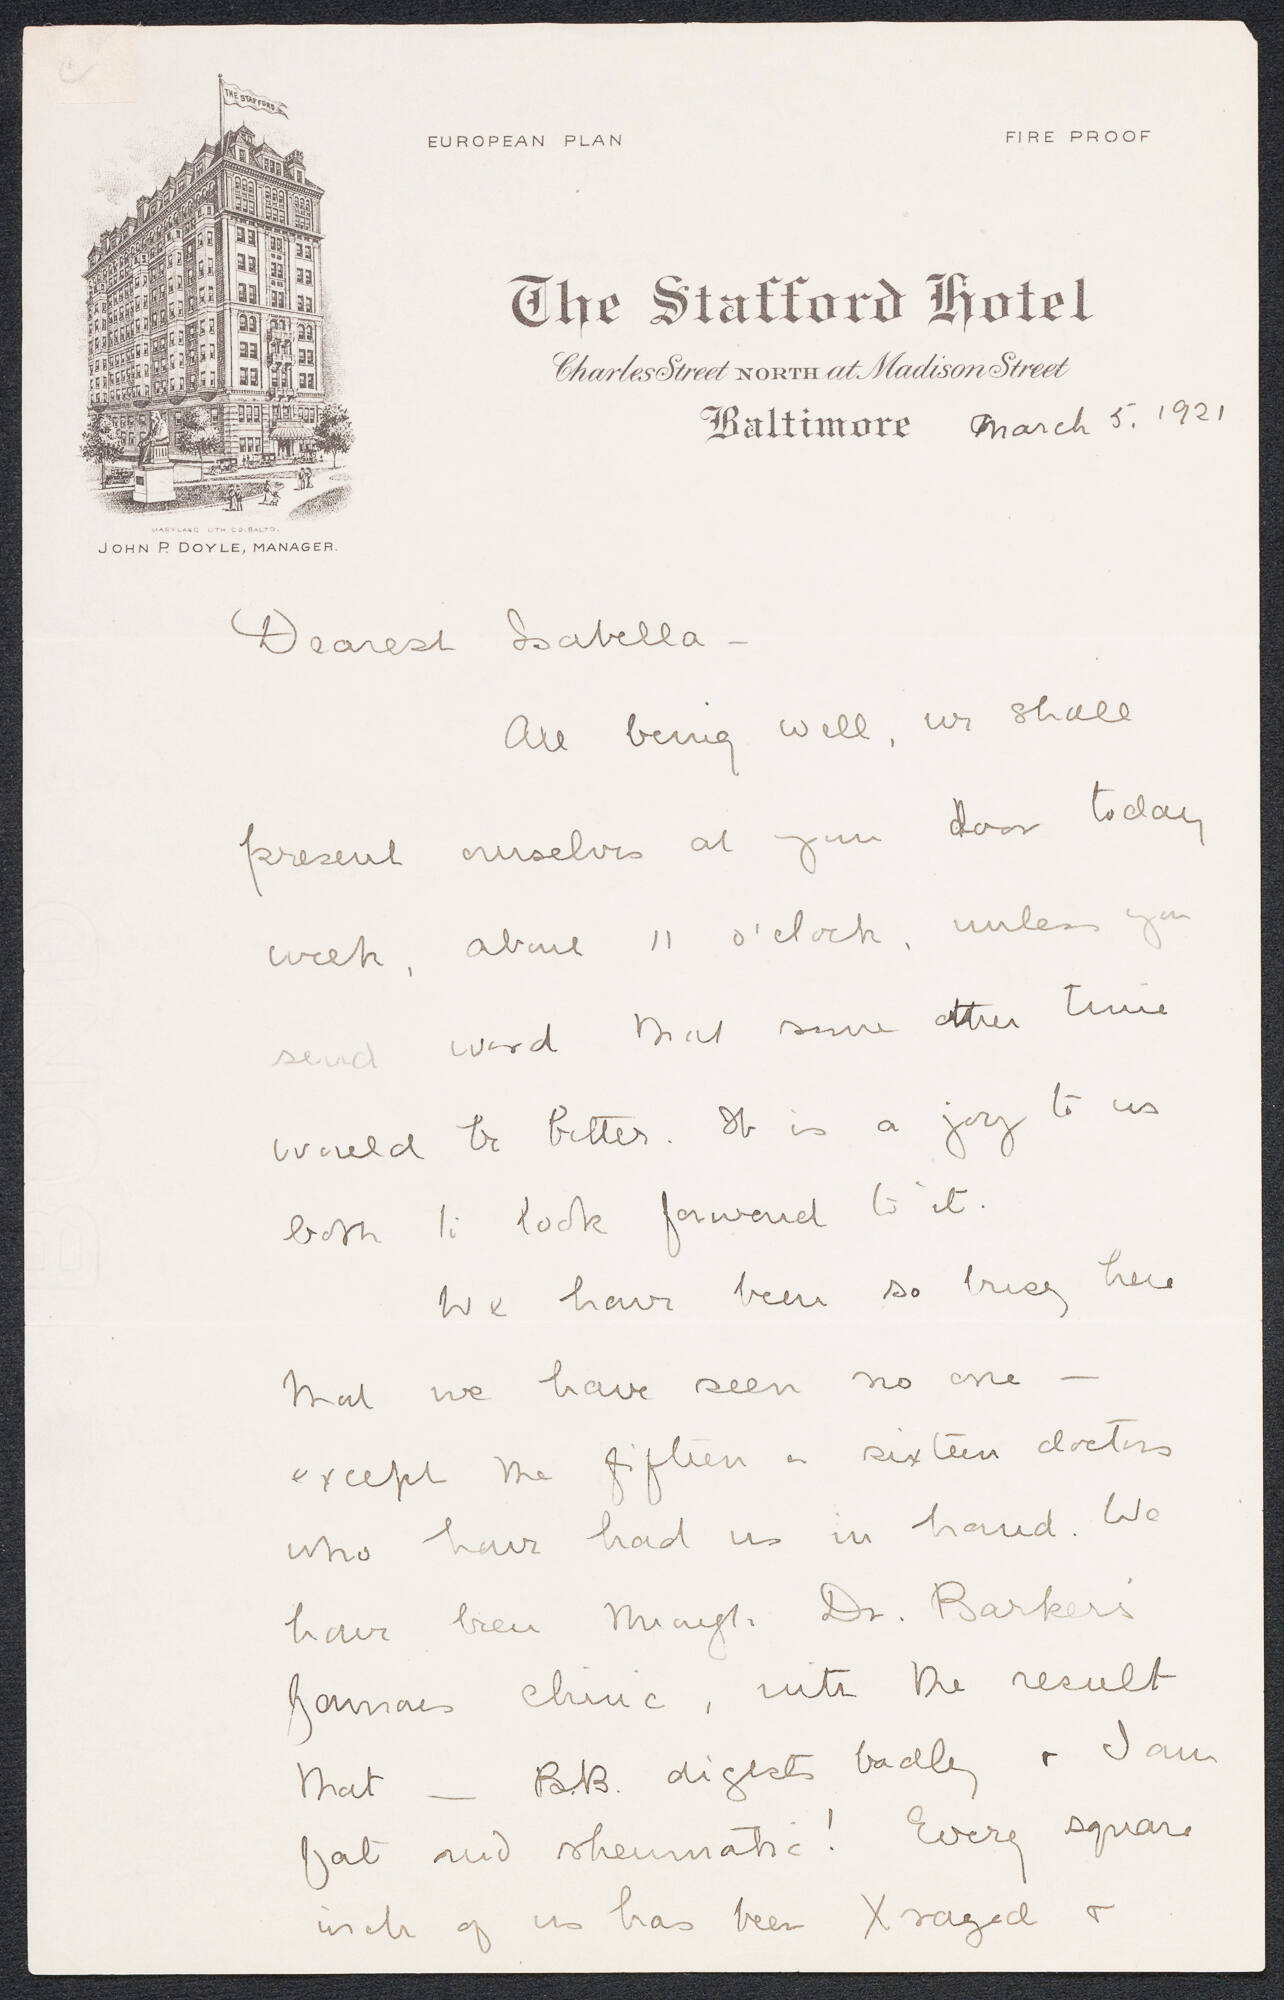 c
THE STAFFORD
EUROPEAN PLAN
FIRE PROOF
The Stafford Hotel
Charles Street NORTH at Madison Street
Baltimore March 5. 1921
MARYLAND LITH. CO. BALTO.
JOHN P. DOYLE, MANAGER.
Dearest Isabella –
All being well, we shall
present ourselves at your door today
week, about 11 o'clock, unless you
send word that some other time
would be better. It is a joy to us
both to look forward to it.
We have been so busy here
that we have seen no one –
except the fifteen or sixteen doctors
who have had us in hand. We
have been through Dr. Barker's
famous clinic, with the result
that — B.B. digests badly & I am
fat and rheumatic! Every square
inch of us has been Xrayed &